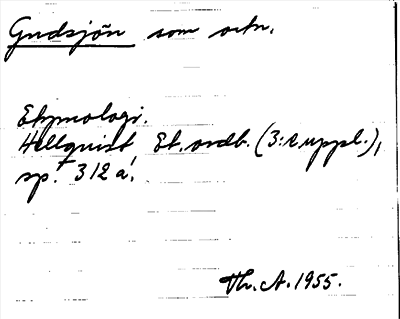 Gudsjön som ortn.
Etymologi.
Hellquist Et. ordb. (3:e uppl.),
sp. 312 a.
Th. A. 1955.